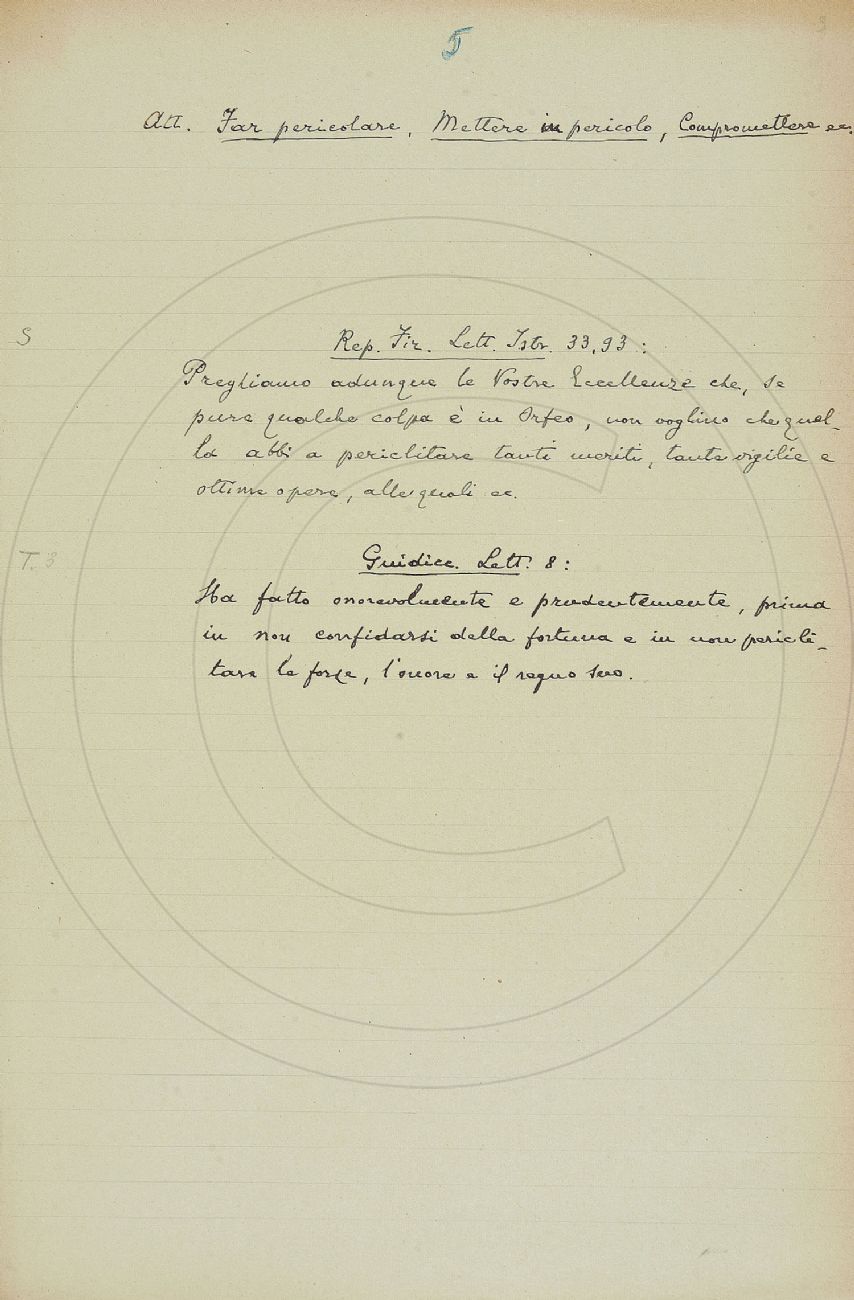 5
Att. Far pericolare, Mettere in pericolo, Compromettere ec.
S
Rep. Fir. Lett. Istr. 33, 93:
Preghiamo adunque le Vostre Eccellenze che, se
pure qualche colpa è in Orfeo, non voglino che quel-
la abbi a periclitare tanti meriti, tante vigilie e
ottime opere, alle quali ec.
T. 3
Guidicc. Lett. 8:
Ha fatto onorevolmente e prudentemente, prima
in non confidarsi della fortuna e in non pericli-
tare le forze, l'onore e il regno suo.